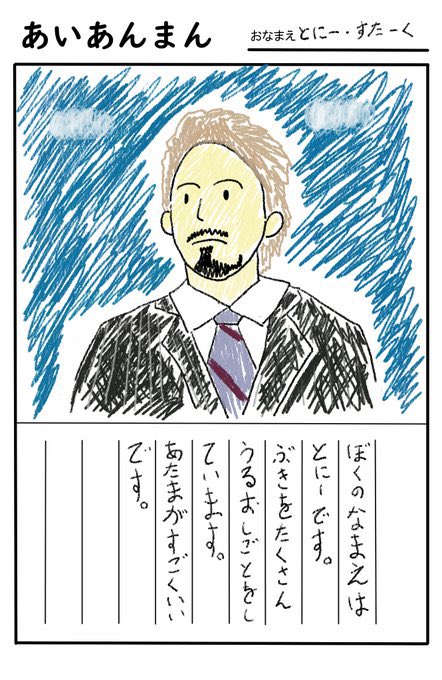 あいあんまん
おなまえ とにー・すたーく
ぼくのなまえは
とにーです。
ぶきをたくさん
うるおしごとをし
ています。
あたまがすごくいい
です。